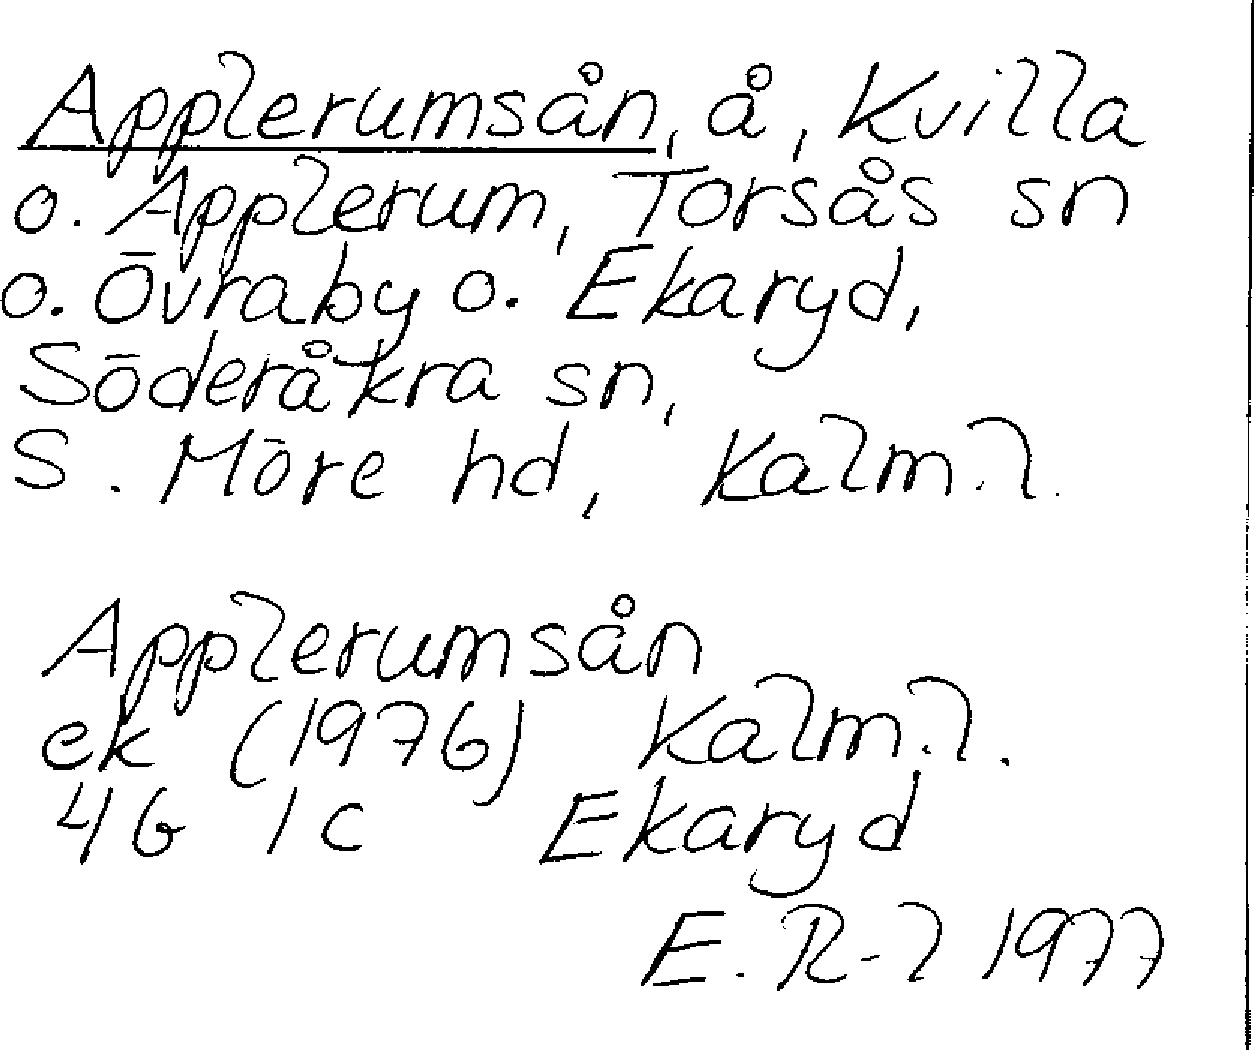 Applerumsån, å, Kvilla
o. Applerum, Torsås sn
o. Övraby o. Ekaryd,
Söderåkra sn,
S. Möre hd, Kalm.l.
Applerumsån
ek (1976) Kalm.l.
4G 1c Ekaryd
E. R-l 1977